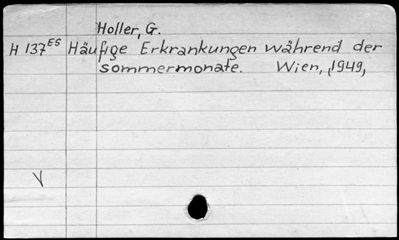 Holler, G.
H 137ES Häufige Erkrankungen während der
sommermonate. Wien, 1949,
V